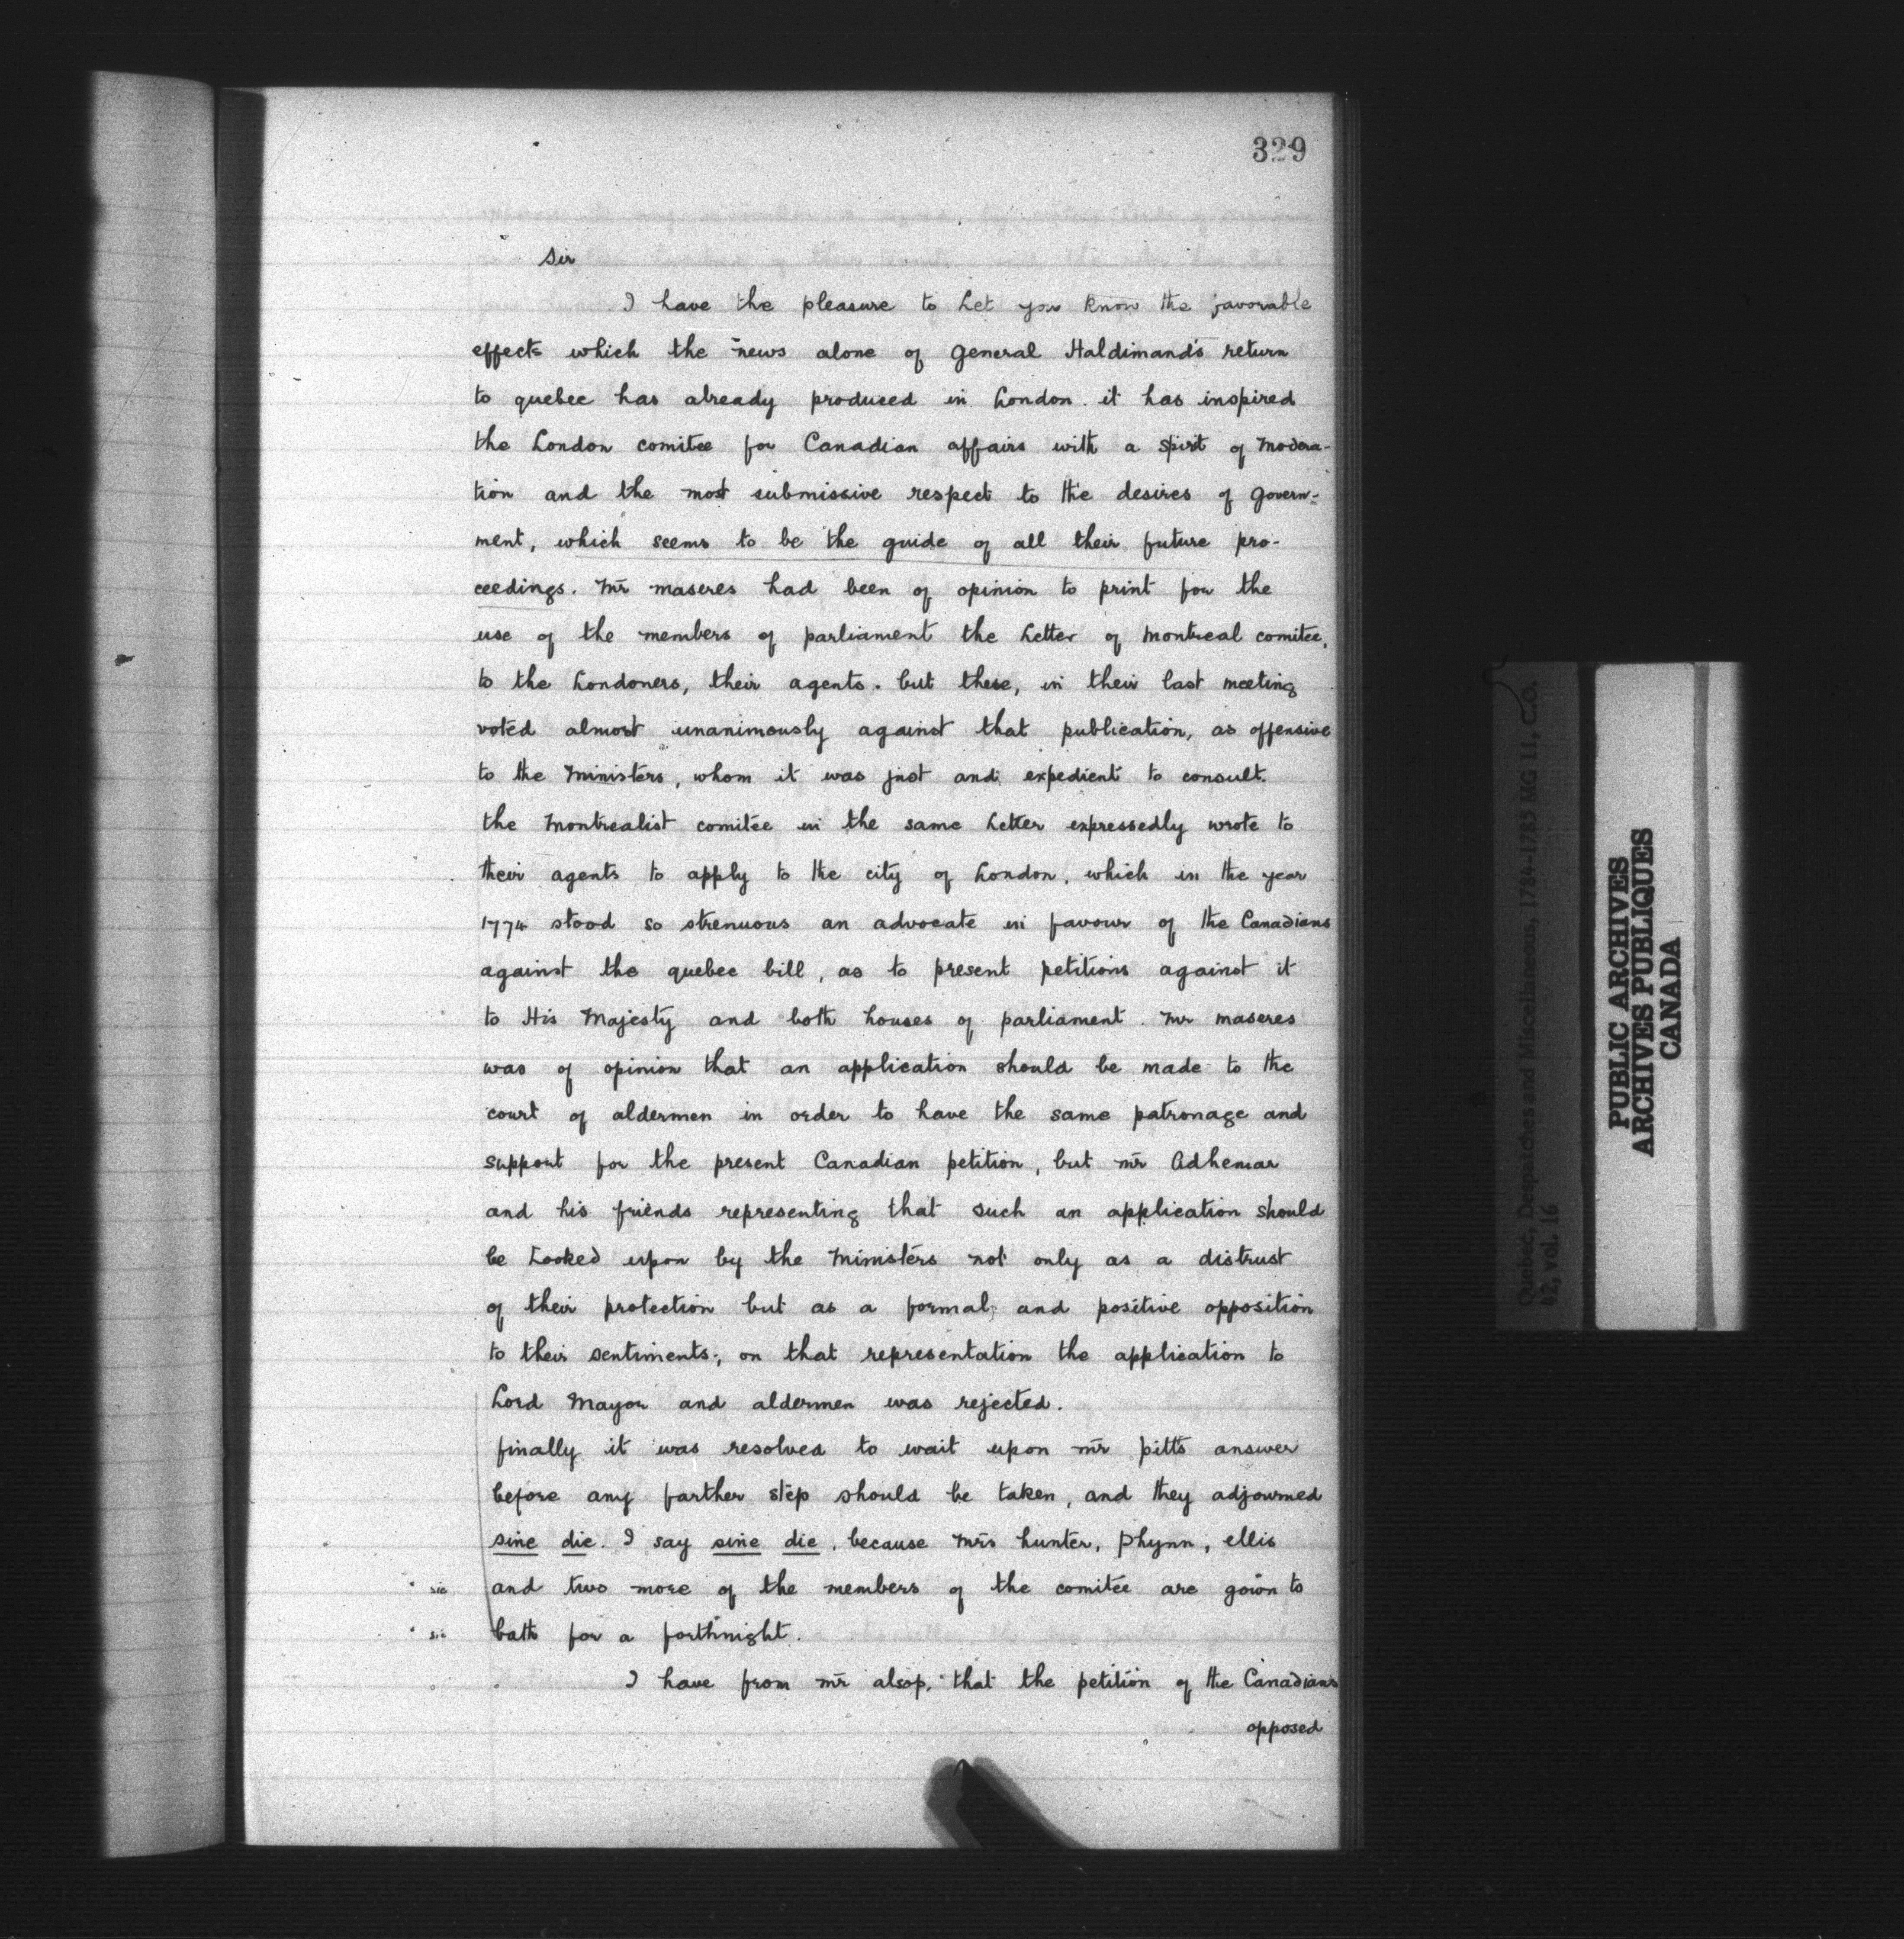 329
Sir
I have the pleasure to Let you know the favorable
effects which the news alone of general Haldimand's return
to quebec has already produced in London. it has inspired
the London comitee for Canadian affairs with a spirit of modera-
tion and the most submissive respect to the desires of govern-
ment, which seems to be the guide of all their future pro-
ceedings. Mr maseres had been of opinion to print for the
use of the members of parliament the Letter of montreal comitee,
to the Londoners, their agents. but these, in their last meeting
voted almost unanimously against that publication, as offensive
to the ministers, whom it was just and expedient to consult.
the montrealist comitee in the same Letter expressedly wrote to
their agents to apply to the city of London, which in the year
1774 stood so strenuous an advocate in favour of the Canadians
against the quebec bill, as to present petitions against it
to His Majesty and both houses of parliament. Mr maseres
was of opinion that an application should be made to the
court of aldermen in order to have the same patronage and
support for the present Canadian petition, but mr adhemar
and his friends representing that such an application should
be Looked upon by the ministers not only as a distrust
of their protection but as a formal and positive opposition
to their sentiments; on that representation the application to
Lord Mayor and aldermen was rejected.
finally it was resolved to wait upon mr pitt's answer
before any farther step should be taken, and they adjourned
sine die. I say sine die, because mrs hunter, phynn, ellis
* sic and two more of the members of the comitee are goïn to
* sic bath for a forthnight.
I have from mr alsop, that the petition of the Canadians
opposed
Quebec, Despatches and Miscellaneous, 1784-1785 MG 11, C.O.
42, vol. 16
PUBLIC ARCHIVES
ARCHIVES PUBLIQUES
CANADA